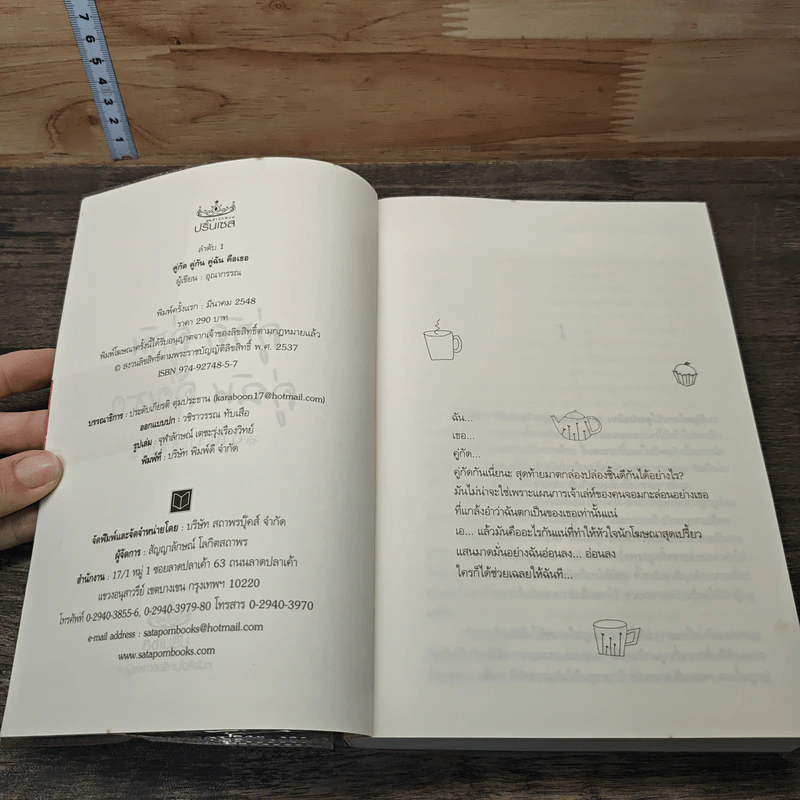 7 6 5 4 3 2 1
ปริ๊นเซส
ลำดับ 1
คู่กัด คู่กัน คู่ฉัน คือเธอ
ผู้เขียน : อุณากรรณ
พิมพ์ครั้งแรก : มีนาคม 2548
ราคา 290 บาท
พิมพ์โฆษณาครั้งนี้ได้รับอนุญาตจากเจ้าของลิขสิทธิ์ตามกฎหมายแล้ว
© สงวนลิขสิทธิ์ตามพระราชบัญญัติลิขสิทธิ์ พ.ศ. 2537
ISBN 974-92748-5-7
บรรณาธิการ : ประดับเกียรติ ตุมประธาน (karaboon17@hotmail.com)
ออกแบบปก : วชิราวรรณ ทับเสือ
รูปเล่ม : จุฬาลักษณ์ เตชะรุ่งเรืองวิทย์
พิมพ์ที่ : บริษัท พิมพ์ดี จำกัด
จัดพิมพ์และจัดจำหน่ายโดย : บริษัท สถาพรบุ๊คส์ จำกัด
ผู้จัดการ : สัญญาลักษณ์ โลกิตสถาพร
สำนักงาน : 17/1 หมู่ 1 ซอยลาดปลาเค้า 63 ถนนลาดปลาเค้า
แขวงอนุสาวรีย์ เขตบางเขน กรุงเทพฯ 10220
โทรศัพท์ 0-2940-3855-6, 0-2940-3979-80 โทรสาร 0-2940-3970
e-mail address : satapornbooks@hotmail.com
www.satapornbooks.com
ฉัน...
เธอ...
คู่กัด...
คู่กัดกันเนี่ยนะ สุดท้ายมาตกล่องปล่องชิ้นดีกันได้อย่างไร?
มันไม่น่าจะใช่เพราะแผนการเจ้าเล่ห์ของคนจอมกะล่อนอย่างเธอ
ที่แกล้งอำว่าฉันตกเป็นของเธอเท่านั้นแน่
เอ... แล้วมันคืออะไรกันแน่ที่ทำให้หัวใจนักโฆษณาสุดเปรี้ยว
แสนมาดมั่นอย่างฉันอ่อนลง... อ่อนลง
ใครก็ได้ช่วยเฉลยให้ฉันที...